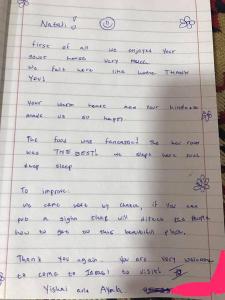 Natali!
first of all we enjoyed your
guest house very much
We felt here like home THANK
YOU!
Your warm house and your kindness
made us so happy.
The food was fantastic! The bed room
was THE BEST! we slept here such
deep sleep
To improve:
we came here by chance, if you can
put a sighn that will direct the people
how to get to this beautiful place.
Thank you again. You are very welcome
to come to Israel to visit
Yishai and